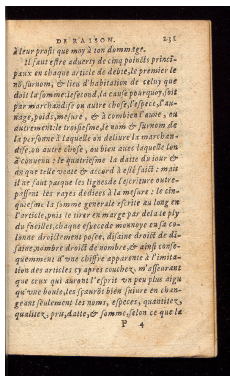 DE RAISON. 231
à leur profit que moy à ton dommage.
Il faut estre aduerty de cinq poincts princi-
paux en chaque article de debte, le premier le
nõ, surnom, & lieu d'habitation de celuy que
doit la somme: le second, la cause pourquoy, soit
par marchandise ou autre chose, l'espece, l'au-
nage, poids, mesure, & à combien l'aune, ou
autrement: le troisiesme, le nom & surnom de
la personne à laquelle on deliure la marchan-
dise, ou autre chose, ou bien auec laquelle lon
à conuenu: le quatriesme la datte du iour &
an que telle vente & accord à esté faict: mais
il ne faut pas que les lignes de l'escriture outre-
passent les rayes dediees à la mesure: le cin-
quiesme la somme generale escrite au long en
l'article, puis le tirer en marge par de la le ply
du fueillet, chaque espece de monnoye en sa co-
lonne droictement posee, disaine droict de di-
saine, nombre droict de nombre, & ainsi conse-
quemment d'vne chiffre apparente à l'imita-
tion des articles cy apres couchez, m'asseurant
que ceux qui auront l'esprit vn peu plus aigu
qu'vne boule, les sçauront bien suiure en chan-
geant seulement les noms, especes, quantitez,
qualitez, pris, datte, & somme, selon ce que la
P 4